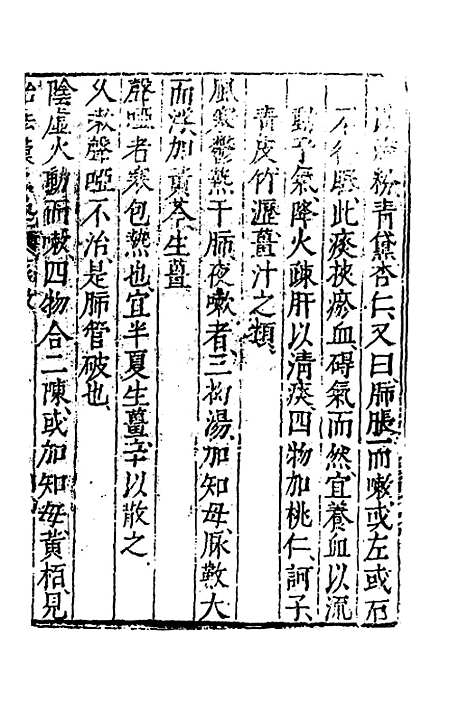 以海粉青黛杏仁又曰肺脹而嗽或左或右
不得眠此痰挾瘀血碍氣而然宜養血以流
動乎氣降火疎肝以清痰四物加桃仁訶子
青皮竹瀝薑汁之類
風寒鬱熱于肺夜嗽者三拗湯加知母脉數大
而洪加黄芩生薑
聲啞者寒包熱也宜半夏生薑辛以散之
久嗽聲啞不治是肺管破也
陰虛火動而嗽四物合二陳或加知母黄栢見